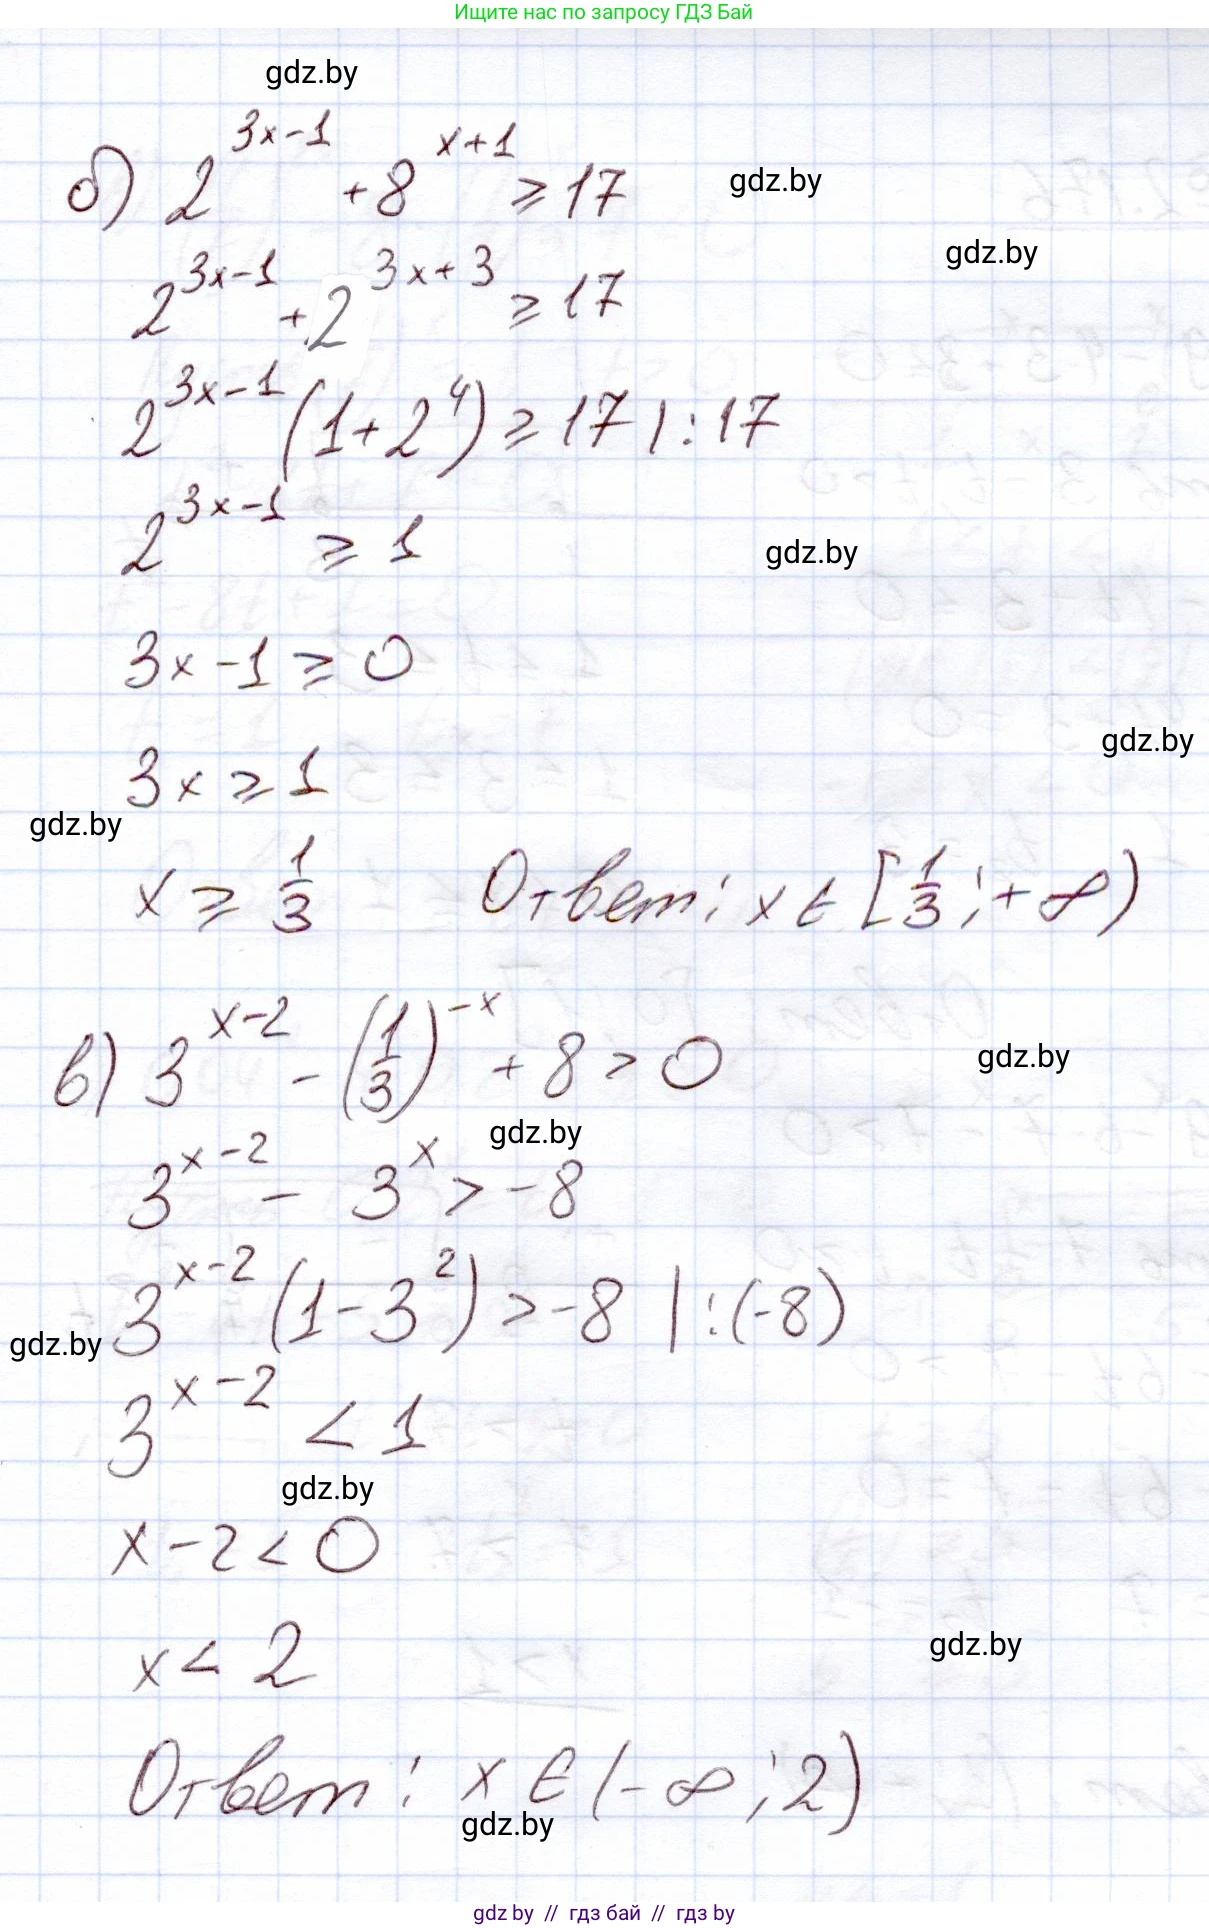 Ищите нас по запросу ГДЗ Бай
gdz.by
б) 2^(3x-1) + 8^(x+1) ≥ 17
gdz.by
gdz.by
2^(3x-1) + 2^(3x+3) ≥ 17
2^(3x-1) (1+2^4) ≥ 17 | : 17
2^(3x-1) ≥ 1
gdz.by
3x-1 ≥ 0
gdz.by
3x ≥ 1
gdz.by
x ≥ 1/3 Ответ: x ∈ [1/3; +∞)
в) 3^(x-2) - (1/3)^(-x) + 8 > 0
gdz.by
gdz.by
3^(x-2) - 3^x > -8
3^(x-2) (1-3^2) > -8 | : (-8)
gdz.by
3^(x-2) < 1
gdz.by
x-2 < 0
gdz.by
x < 2
Ответ: x ∈ (-∞; 2)
gdz.by
gdz by // гдз бай // гдз by